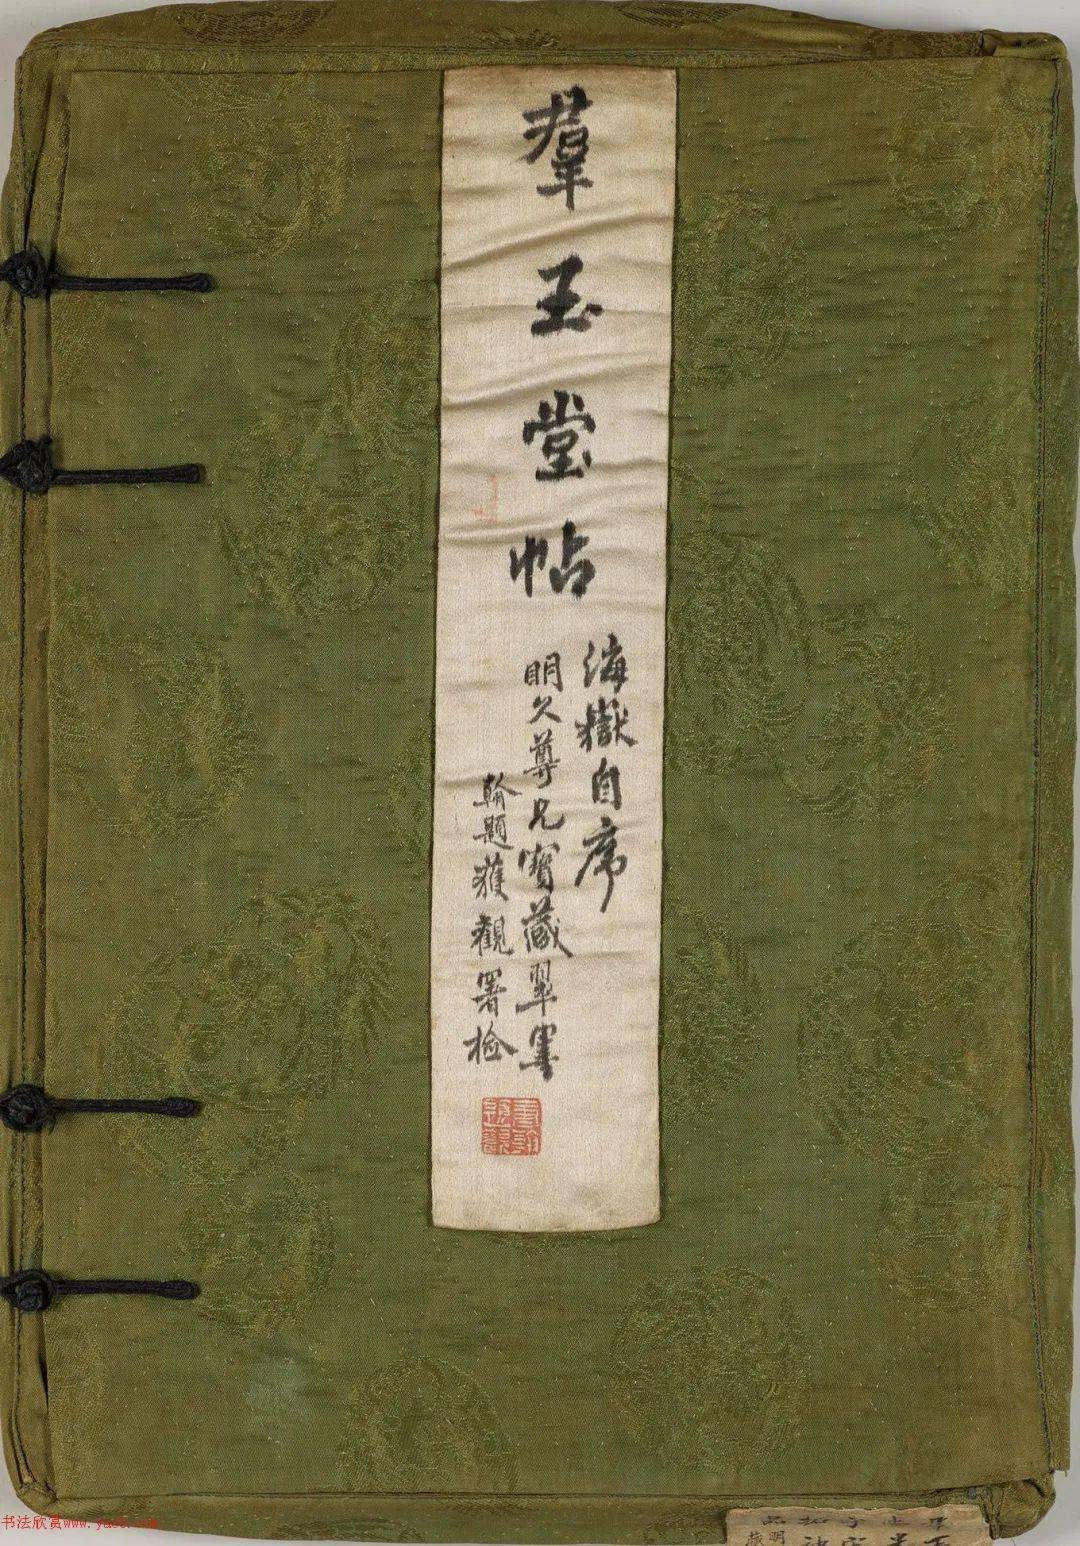 羣玉堂帖
海嶽自序
明久尊兄寶藏翠墨
翰題獲觀署檢
书法欣赏www.yac8.com